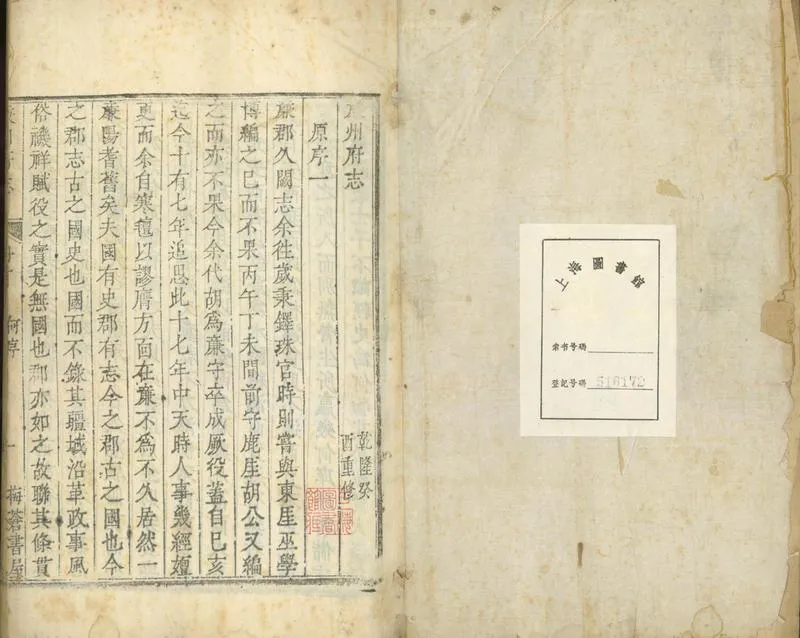 上海圖書館
索书号碼
登記号碼 516172
州府志
乾隆癸
酉重修
原序一
廉郡久闕志余往歲秉鐸珠官時則嘗與東厓巫學
博編之已而不果丙午丁未間前守鹿厓胡公又編
之而亦不果今余代胡為廉守卒成厥役蓋自已亥
迄今十有七年追思此十七年中天時人事幾經嬗
更而余自寒氊以謬膺方面在廉不為不久居然一
廉陽耆舊矣夫國有史郡有志今之郡古之國也今
之郡志古之國史也國而不錄其疆域沿革政事風
俗禨祥賦役之實是無國也郡亦如之故聯其條貫
何序
一
梅蒼書屋